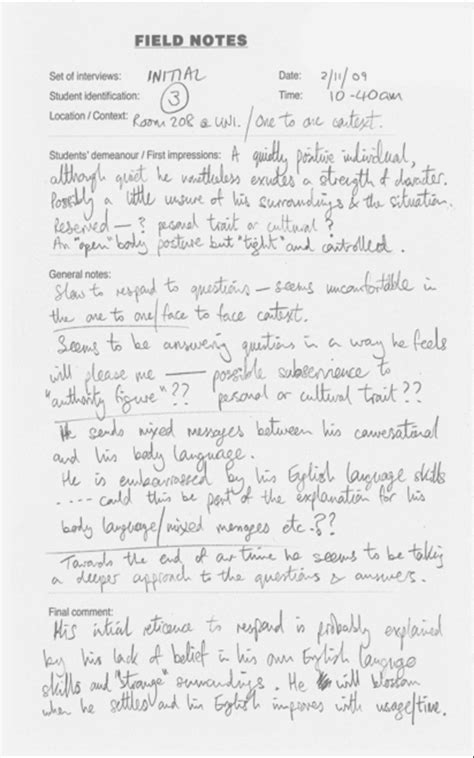 FIELD NOTES
Set of interviews: INITIAL Date: 2/11/09
Student identification: 3 Time: 10-40am
Location / Context: Room 208 @ UNI. / One to one context.
Students' demeanour / First impressions: A quietly positive individual,
although quiet he nonetheless exudes a strength of character.
Possibly a little unsure of his surroundings & the situation.
Reserved — ? personal trait or cultural ?
An "open" body posture but "tight" and controlled.
General notes:
Slow to respond to questions — seems uncomfortable in
the one to one/face to face context.
Seems to be answering questions in a way he feels
will please me — possible subservience to
"authority figure"?? personal or cultural trait??
He sends mixed messages between his conversational
and his body language.
He is embarrassed by his English language skills
.... could this be part of the explanation for his
body language/mixed messages etc-??
Towards the end of our time he seems to be taking
a deeper approach to the questions & answers.
Final comment:
His initial reticence to respond is probably explained
by his lack of belief in his own English language
skills and "strange" surroundings. He will blossom
when he settles and his English improves with usage/time.